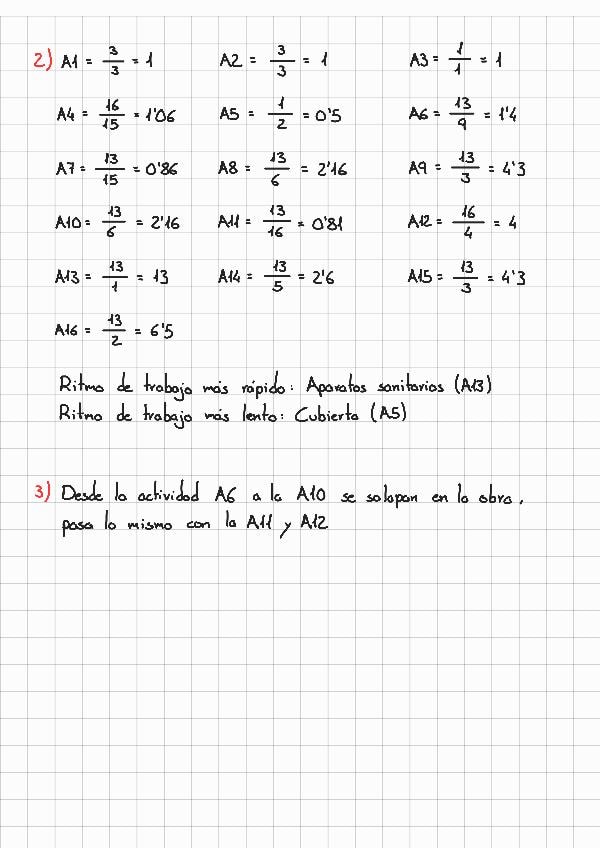 2) A1 = 3/3 = 1 A2 = 3/3 = 1 A3 = 1/1 = 1
A4 = 16/15 = 1'06 A5 = 1/2 = 0'5 A6 = 13/9 = 1'4
A7 = 13/15 = 0'86 A8 = 13/6 = 2'16 A9 = 13/3 = 4'3
A10 = 13/6 = 2'16 A11 = 13/16 = 0'81 A12 = 16/4 = 4
A13 = 13/1 = 13 A14 = 13/5 = 2'6 A15 = 13/3 = 4'3
A16 = 13/2 = 6'5
Ritmo de trabajo más rápido: Aparatos sanitarios (A13)
Ritmo de trabajo más lento: Cubierta (A5)
3) Desde la actividad A6 a la A10 se solapan en la obra,
pasa lo mismo con la A11 y A12